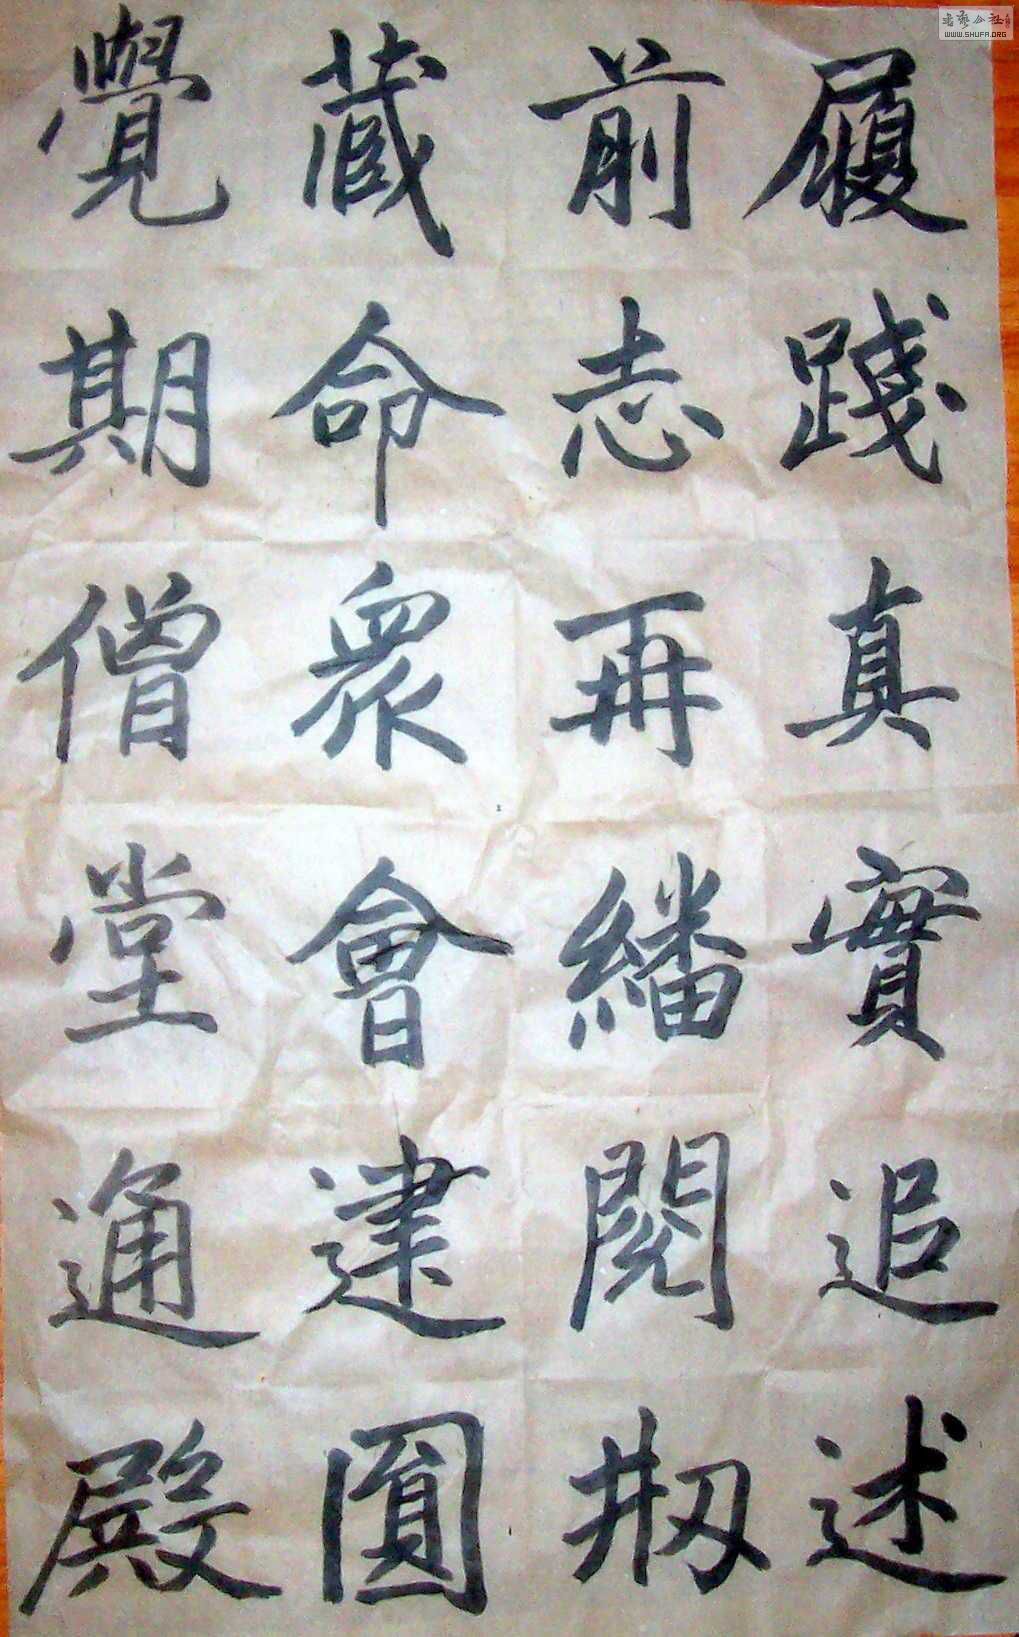 履踐真實追述
前志再繙閱刱
藏命眾會建圓
覺期僧堂通殿
書藝公社
WWW.SHUFA.ORG